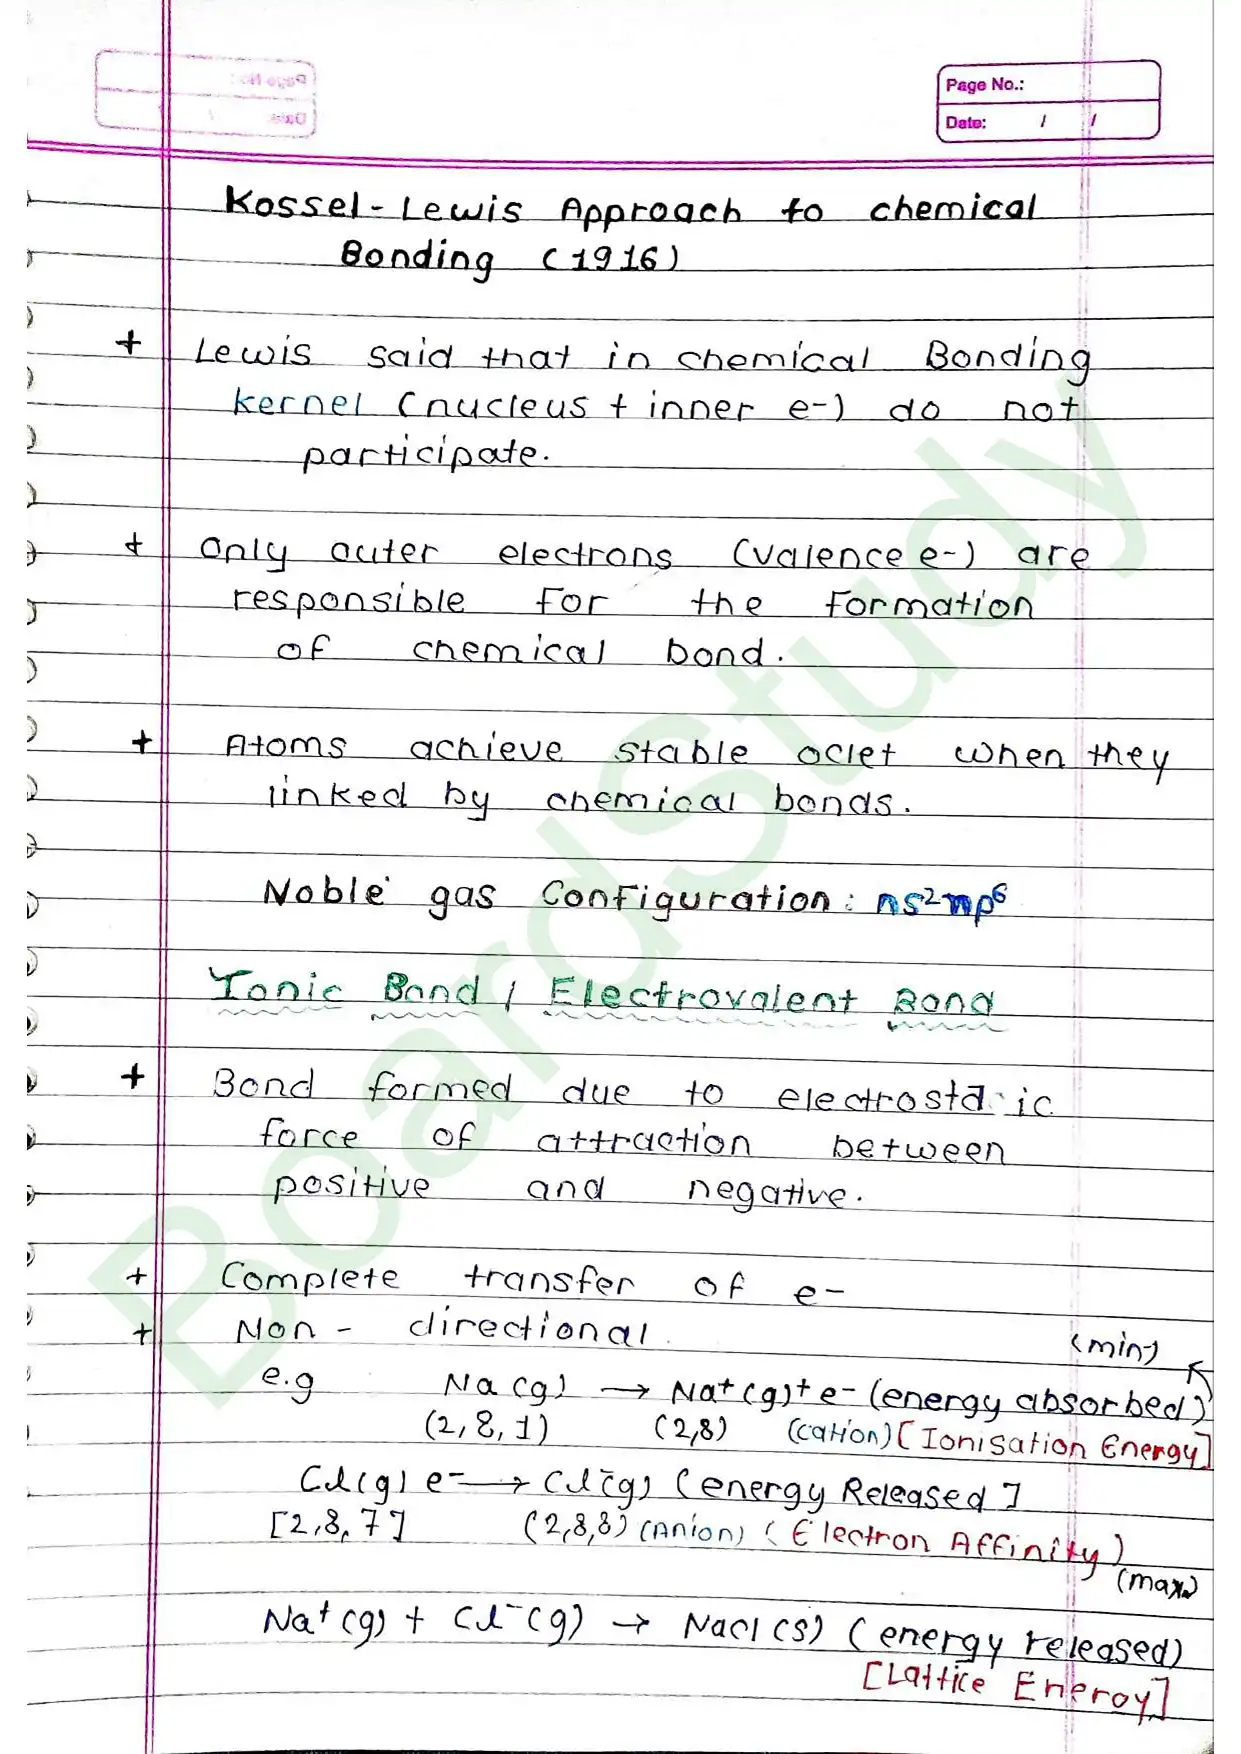 Page No.:
Date: / /
Kossel - Lewis Approach to chemical
Bonding (1916)
+ Lewis said that in chemical Bonding
kernel (nucleus + inner e-) do not
participate.
+ Only outer electrons (valence e-) are
responsible for the formation
of chemical bond.
+ Atoms achieve stable octet when they
linked by chemical bonds.
Noble gas Configuration: ns²np⁶
Ionic Bond / Electrovalent Bond
+ Bond formed due to electrostatic
force of attraction between
positive and negative.
+ Complete transfer of e-
+ Non - directional
(min)
e.g Na (g) → Na⁺(g)+e- (energy absorbed)
(2,8,1) (2,8) (cation) [Ionisation Energy]
Cl(g) e⁻ → Cl⁻(g) (energy Released]
[2,8,7] (2,8,8) (Anion) (Electron Affinity)
(max)
Na⁺(g) + Cl⁻(g) → NaCl (s) (energy released)
[Lattice Energy]
BoardStudy